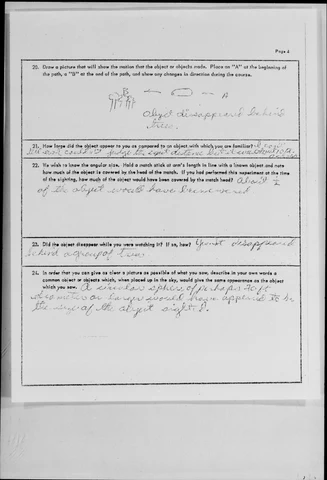 Page 4
20. Draw a picture that will show the motion that the object or objects made. Place an "A" at the beginning of
the path, a "B" at the end of the path, and show any changes in direction during the course.
B
A
object disappeared behind
trees.
21. How large did the object appear to you as compared to an object with which you are familiar?
22. We wish to know the angular size. Hold a match stick at arm's length in line with a known object and note
how much of the object is covered by the head of the match. If you had performed this experiment at the time
of the sighting, how much of the object would have been covered by the match head? About 1/2
of the object would have been covered
23. Did the object disappear while you were watching it? If so, how? It just disappeared
behind a group of trees
24. In order that you can give as clear a picture as possible of what you saw, describe in your own words a
common object or objects which, when placed up in the sky, would give the same appearance as the object
which you saw. A similar sphere of perhaps
diameter or larger would have appeared to be
the size of the object sighted.